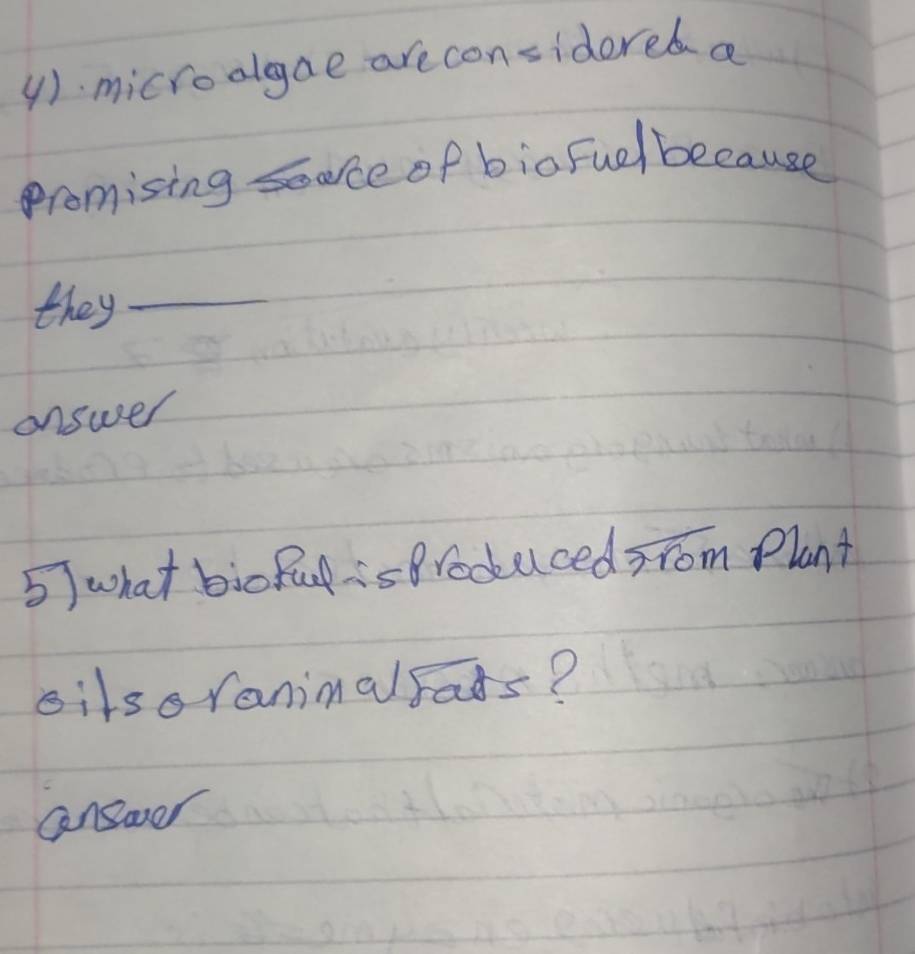 4) microalgae are considered a
promising source of biofuel because
they ———
answer
5) what biofuel is produced from plant
oils or animal fats?
answer